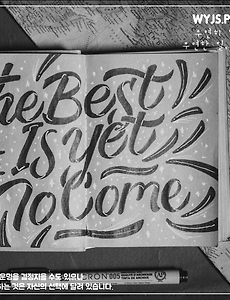 WYJS.P
우연히
the Best
Is yet
To Come
운명을 결정지을 수도 있으나
하는 것은 자신의 선택에 달려 있습니다.
CRON 005